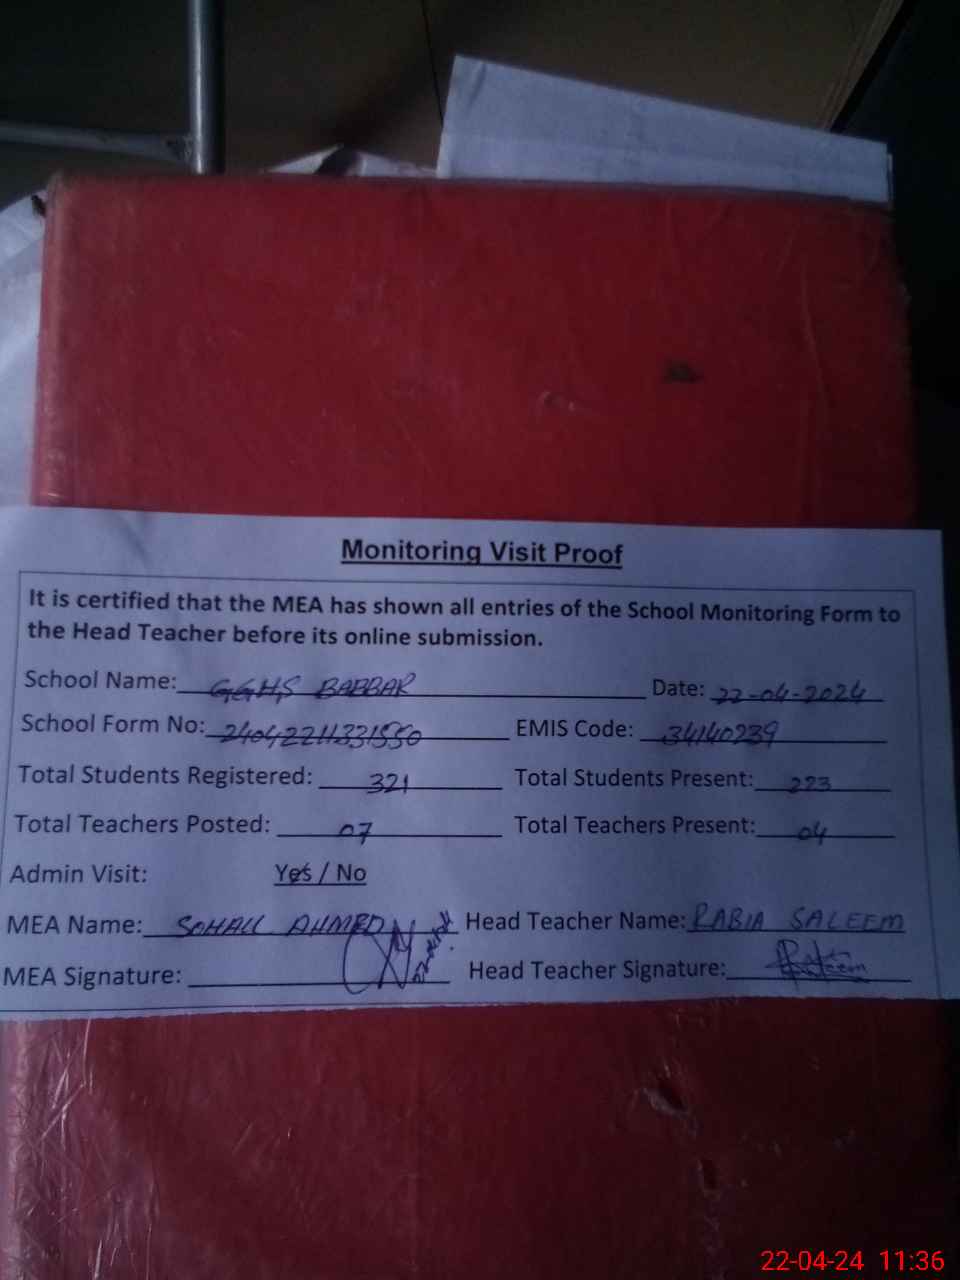 Monitoring Visit Proof
It is certified that the MEA has shown all entries of the School Monitoring Form to
the Head Teacher before its online submission.
School Name: GGHS BABBAR Date: 22-04-2024
School Form No: 24042211331550 EMIS Code: 34140239
Total Students Registered: 321 Total Students Present: 223
Total Teachers Posted: 07 Total Teachers Present: 04
Admin Visit: Yes / No
MEA Name: SOHAIL AHMED Head Teacher Name: RABIA SALEEM
MEA Signature: Head Teacher Signature:
22-04-24 11:36